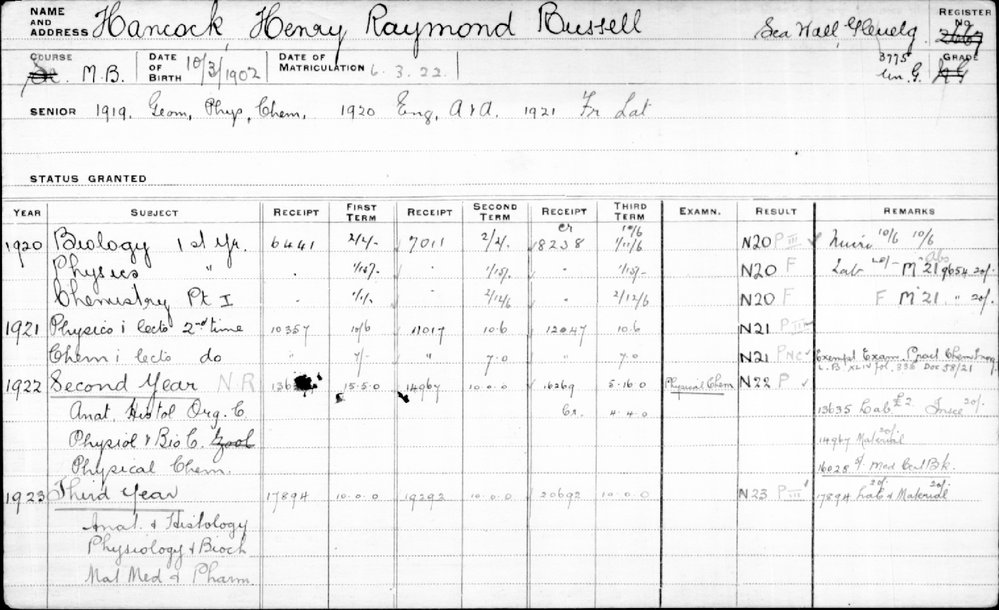 NAME AND ADDRESS Hancock, Henry Raymond Russell Sea Wall, Glenelg. REGISTER No. 2667
COURSE M.B. DATE OF BIRTH 10/3/1902 DATE OF MATRICULATION 6.3.22. 3775 Un. G. GRADE
SENIOR 1919. Geom, Phys, Chem, 1920 Eng, A & A. 1921 Fr Lat
STATUS GRANTED
YEAR SUBJECT RECEIPT FIRST TERM RECEIPT SECOND TERM RECEIPT THIRD TERM EXAMN. RESULT REMARKS
1920 Biology 1st Yr. 6441 2/2/- 7011 2/2/- 8238 1/11/6 N20 P III 10/6 10/6
Physics " 1/15/- " 1/15/- " 1/15/- N20 F Lab 20/- M 21 Abs 9654 20/-
Chemistry Pt I " 1/1/- " 2/12/6 " 2/12/6 N20 F F M 21 " 20/-
1921 Physics i lects 2nd time 10357 10/6 11017 10.6 12047 10.6 N21 P III
Chem i lects do " 7/- " 7.0 " 7.0 N21 P NC Exempt Exam. Pract Chem
L.B. XLIV fol. 336 Doc 58/21
1922 Second Year N.R. 15.5.0 14967 10.0.0 16269 5.16.0 Physical Chem N22 P
Anat. Histol Org. C Cr. 4.4.0 13635 Lab. £2 20/-
Physiol & Bio C. Zool 14967 Material 20/-
Physical Chem. 16028 5/- Med Cert Bk.
1923 Third Year 17894 10.0.0 19292 10.0.0 20692 10.0.0 N23 P III 17894 Lab 20/- & Material 20/-
Anat. & Histology
Physiology & Bioch
Mat Med & Pharm.